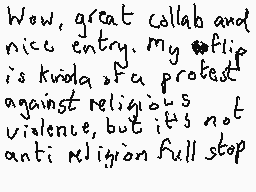 Wow, great collab and
nice entry. My flip
is kinda of a protest
against religious
violence, but it's not
anti religion full stop